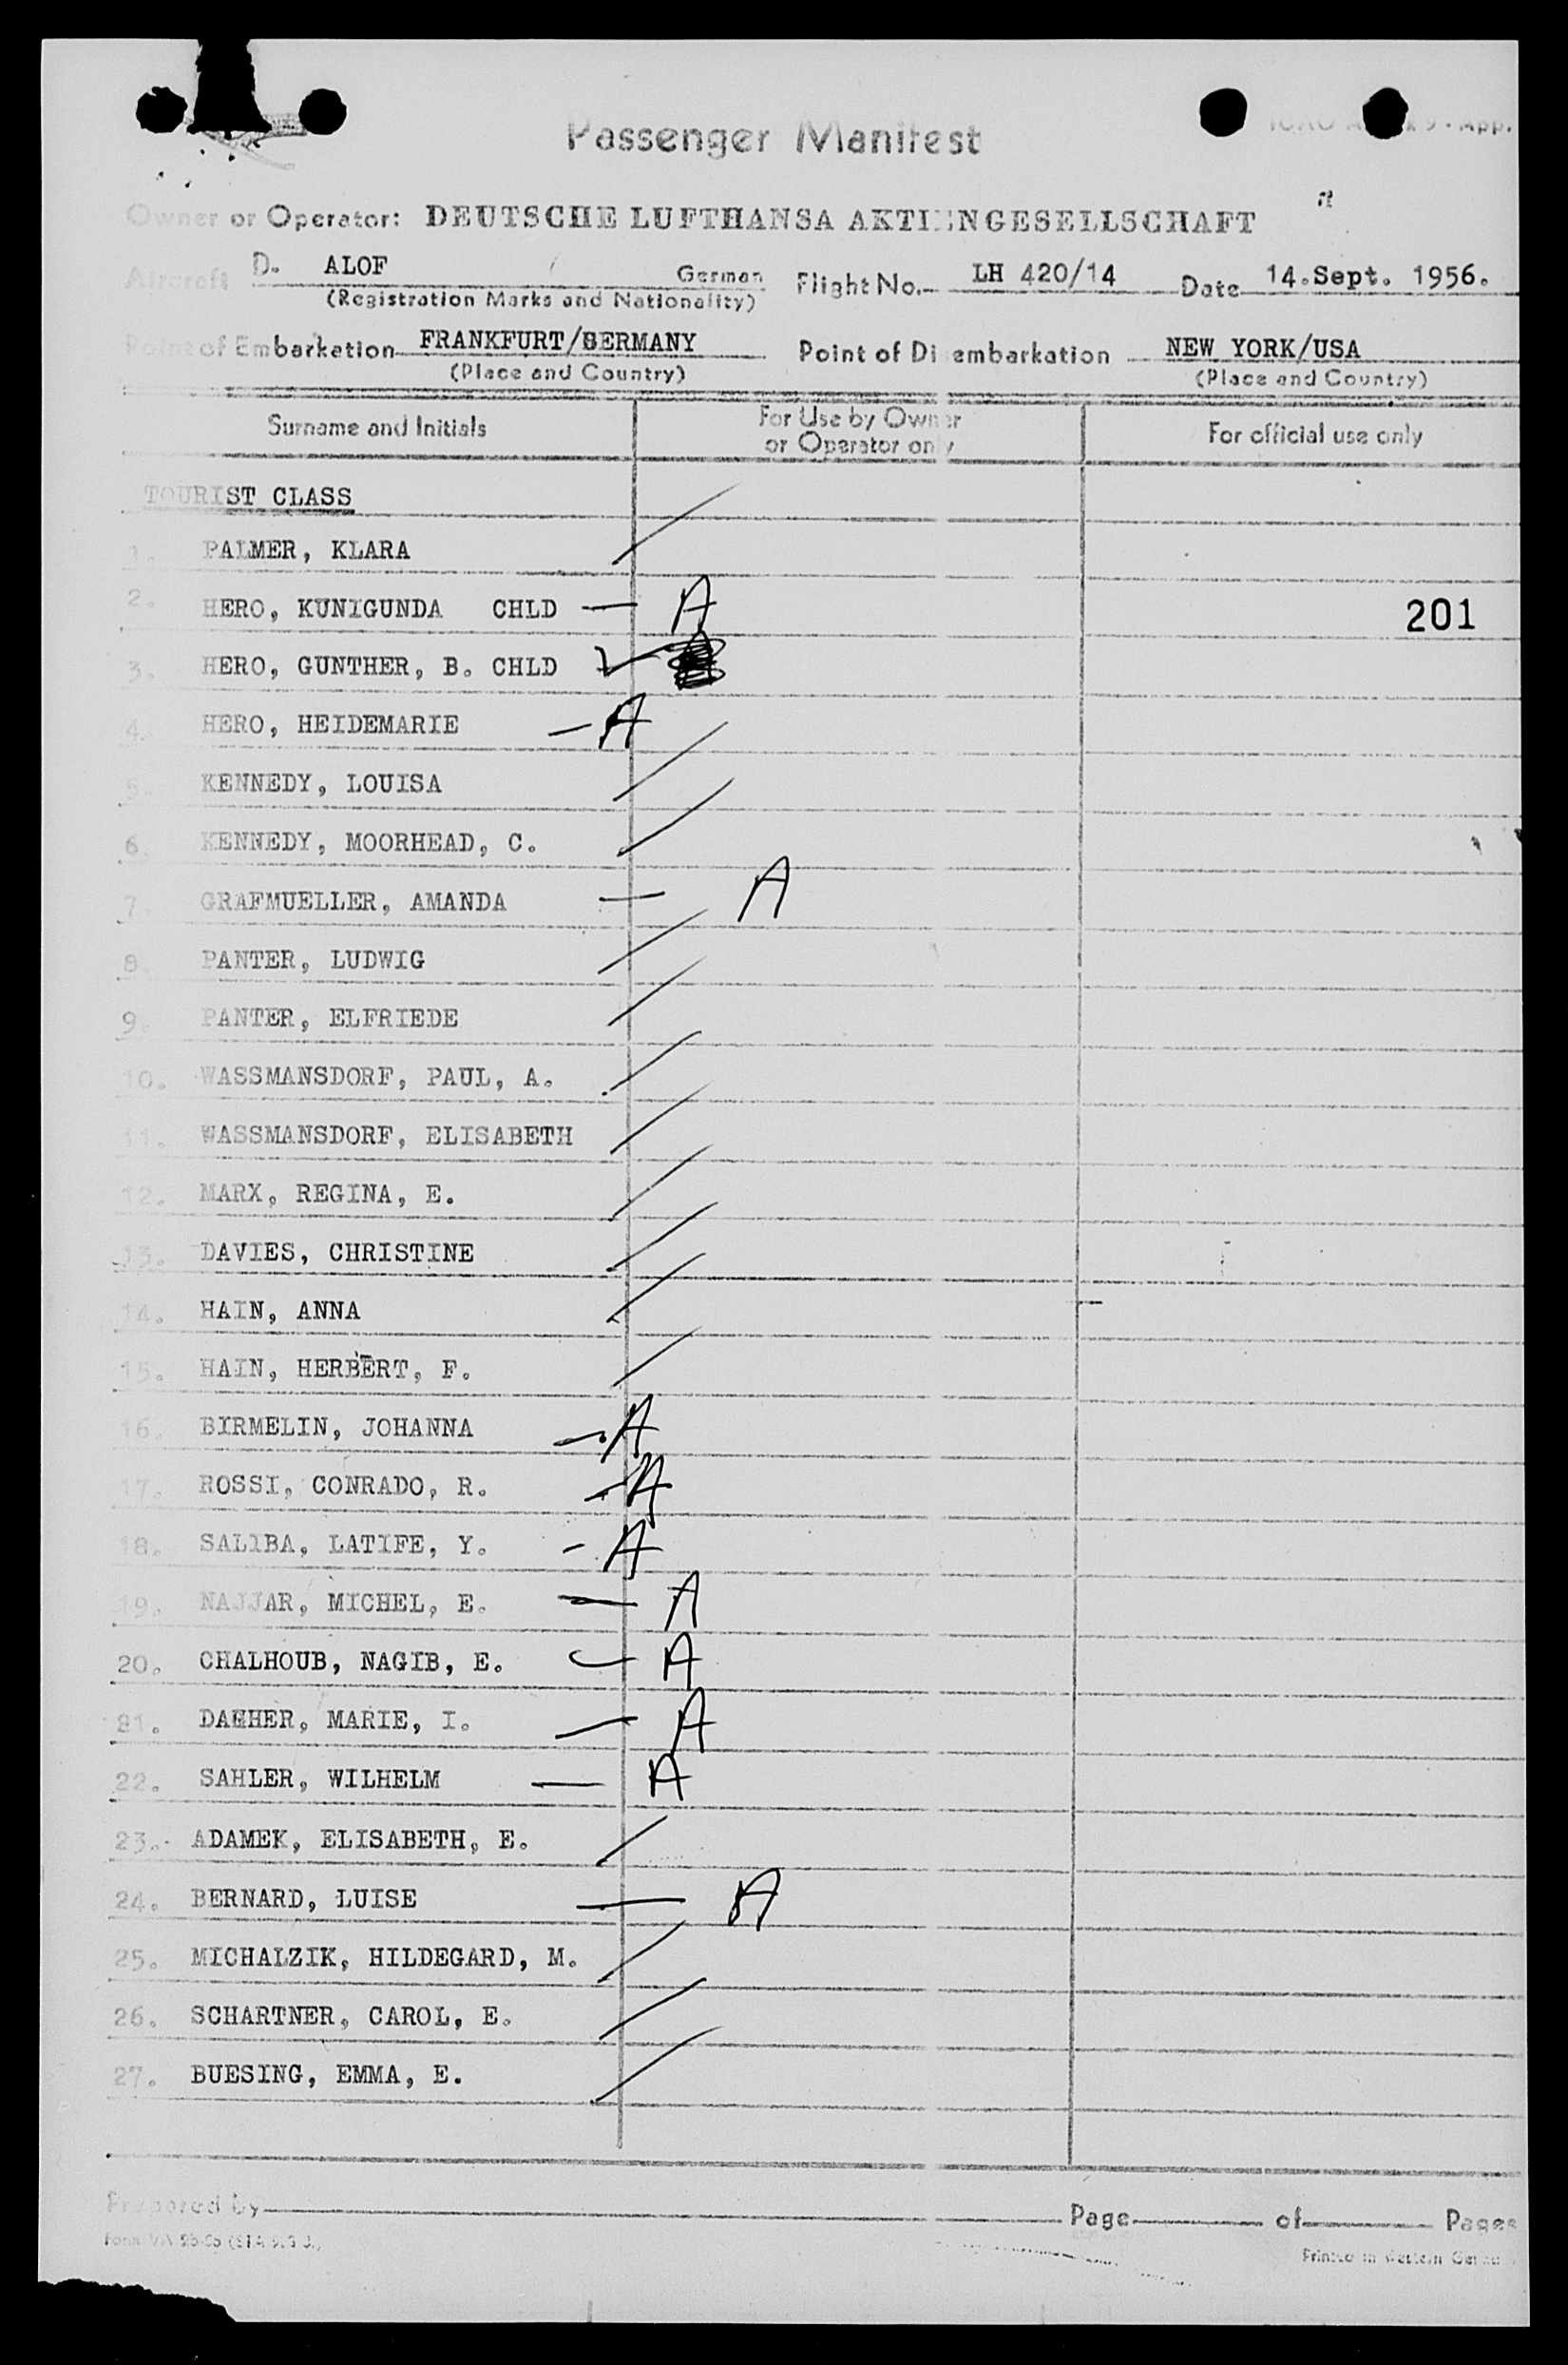 Passenger Manifest
Owner or Operator: DEUTSCHE LUFTHANSA AKTIENGESELLSCHAFT
Aircraft D. ALOF German Flight No. LH 420/14 Date 14.Sept. 1956.
(Registration Marks and Nationality)
Point of Embarkation FRANKFURT/GERMANY Point of Disembarkation NEW YORK/USA
(Place and Country) (Place and Country)
Surname and Initials For Use by Owner or Operator only For official use only
TOURIST CLASS
1. PALMER, KLARA
2. HERO, KUNIGUNDA CHLD — A 201
3. HERO, GUNTHER, B. CHLD
4. HERO, HEIDEMARIE — A
5. KENNEDY, LOUISA
6. KENNEDY, MOORHEAD, C.
7. GRAFMUELLER, AMANDA — A
8. PANTER, LUDWIG
9. PANTER, ELFRIEDE
10. WASSMANSDORF, PAUL, A.
11. WASSMANSDORF, ELISABETH
12. MARX, REGINA, E.
13. DAVIES, CHRISTINE
14. HAIN, ANNA
15. HAIN, HERBERT, F.
16. BIRMELIN, JOHANNA — A
17. ROSSI, CONRADO, R. — A
18. SALIBA, LATIFE, Y. - A
19. NAJJAR, MICHEL, E. — A
20. CHALHOUB, NAGIB, E. — A
21. DAHER, MARIE, I. — A
22. SAHLER, WILHELM — A
23. ADAMEK, ELISABETH, E.
24. BERNARD, LUISE — A
25. MICHALZIK, HILDEGARD, M.
26. SCHARTNER, CAROL, E.
27. BUESING, EMMA, E.
Prepared by Page of Pages
Printed in Western